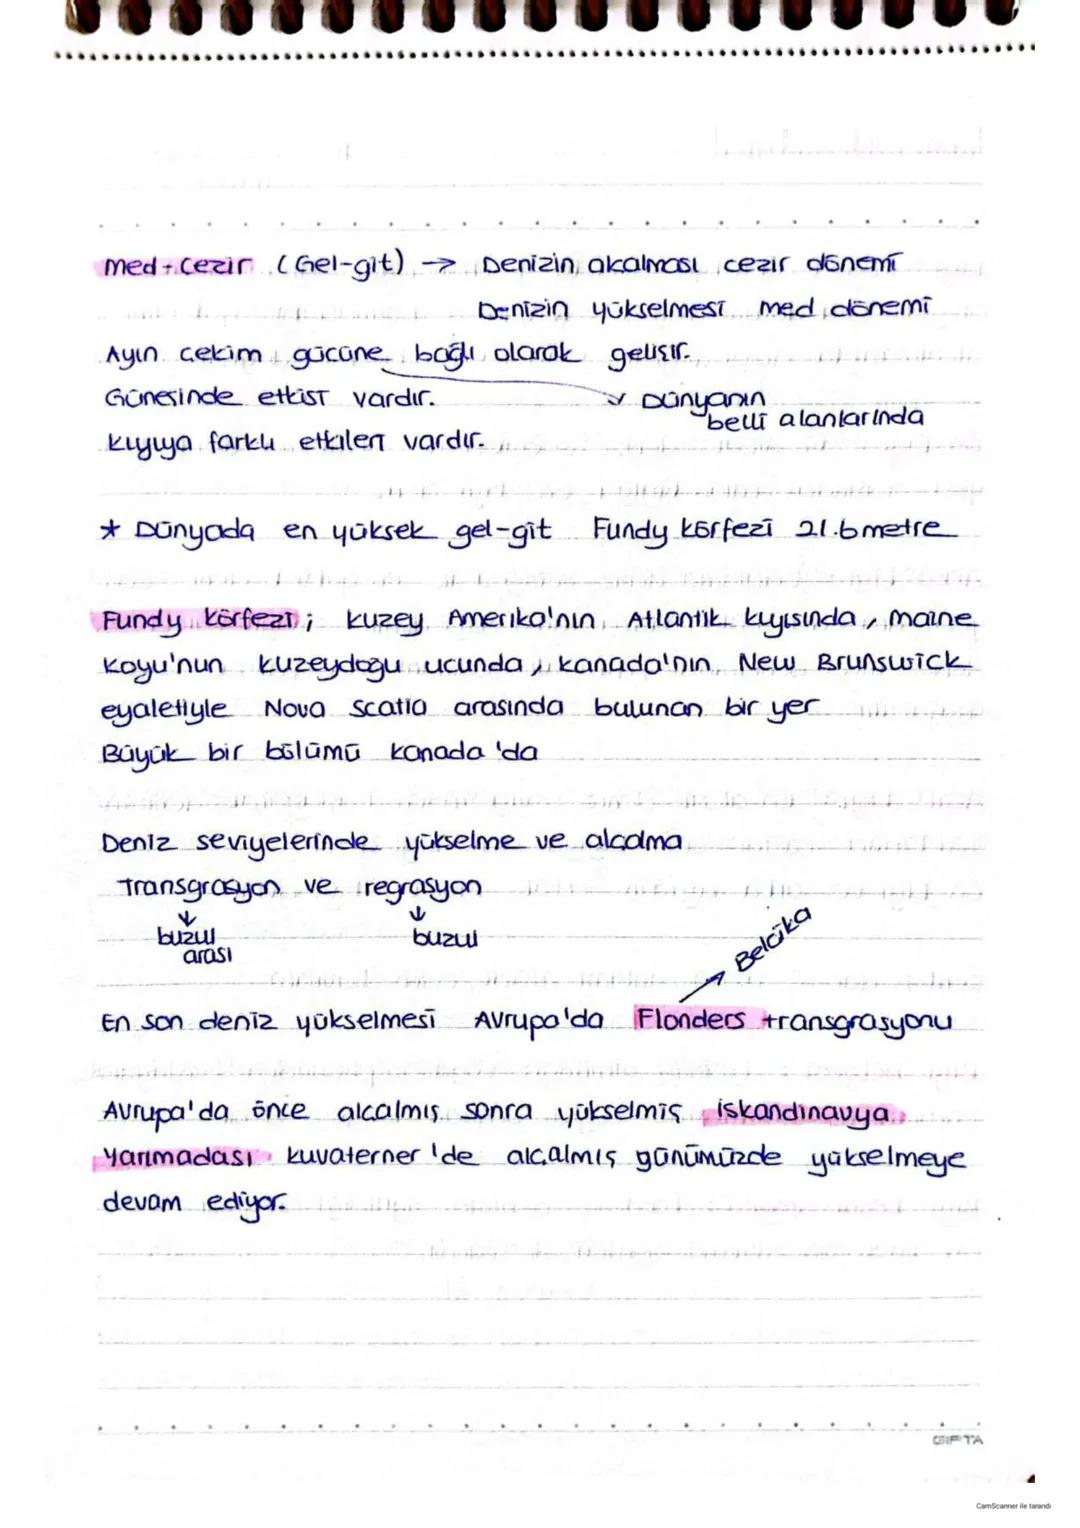 Med-Cezir (Gel-git) → Denizin alçalması cezir dönemi
Denizin yükselmesi med dönemi
Ayın çekim gücüne bağlı olarak gelişir.
Güneşinde etkisi vardır. → Dünyanın
belli alanlarında
Kıyıya farklı etkileri vardır.
* Dünyada en yüksek gel-git Fundy körfezi 21.6 metre
Fundy körfezi; kuzey Amerika'nın Atlantik kıyısında, maine
koyu'nun kuzeydoğu ucunda, kanada'nın New Brunswick
eyaletiyle Nova Scatia arasında bulunan bir yer
Büyük bir bölümü kanada'da
Deniz seviyelerinde yükselme ve alçalma
Transgrasyon ve regrasyon
↓ ↓
buzul buzul
arası
Belçika
En son deniz yükselmesi Avrupa'da Flonders transgrasyonu
Avrupa'da önce alçalmış sonra yükselmiş iskandinavya
Yarımadası kuvaterner'de alçalmış günümüzde yükselmeye
devam ediyor.
GIPTA
CamScanner ile tarandı